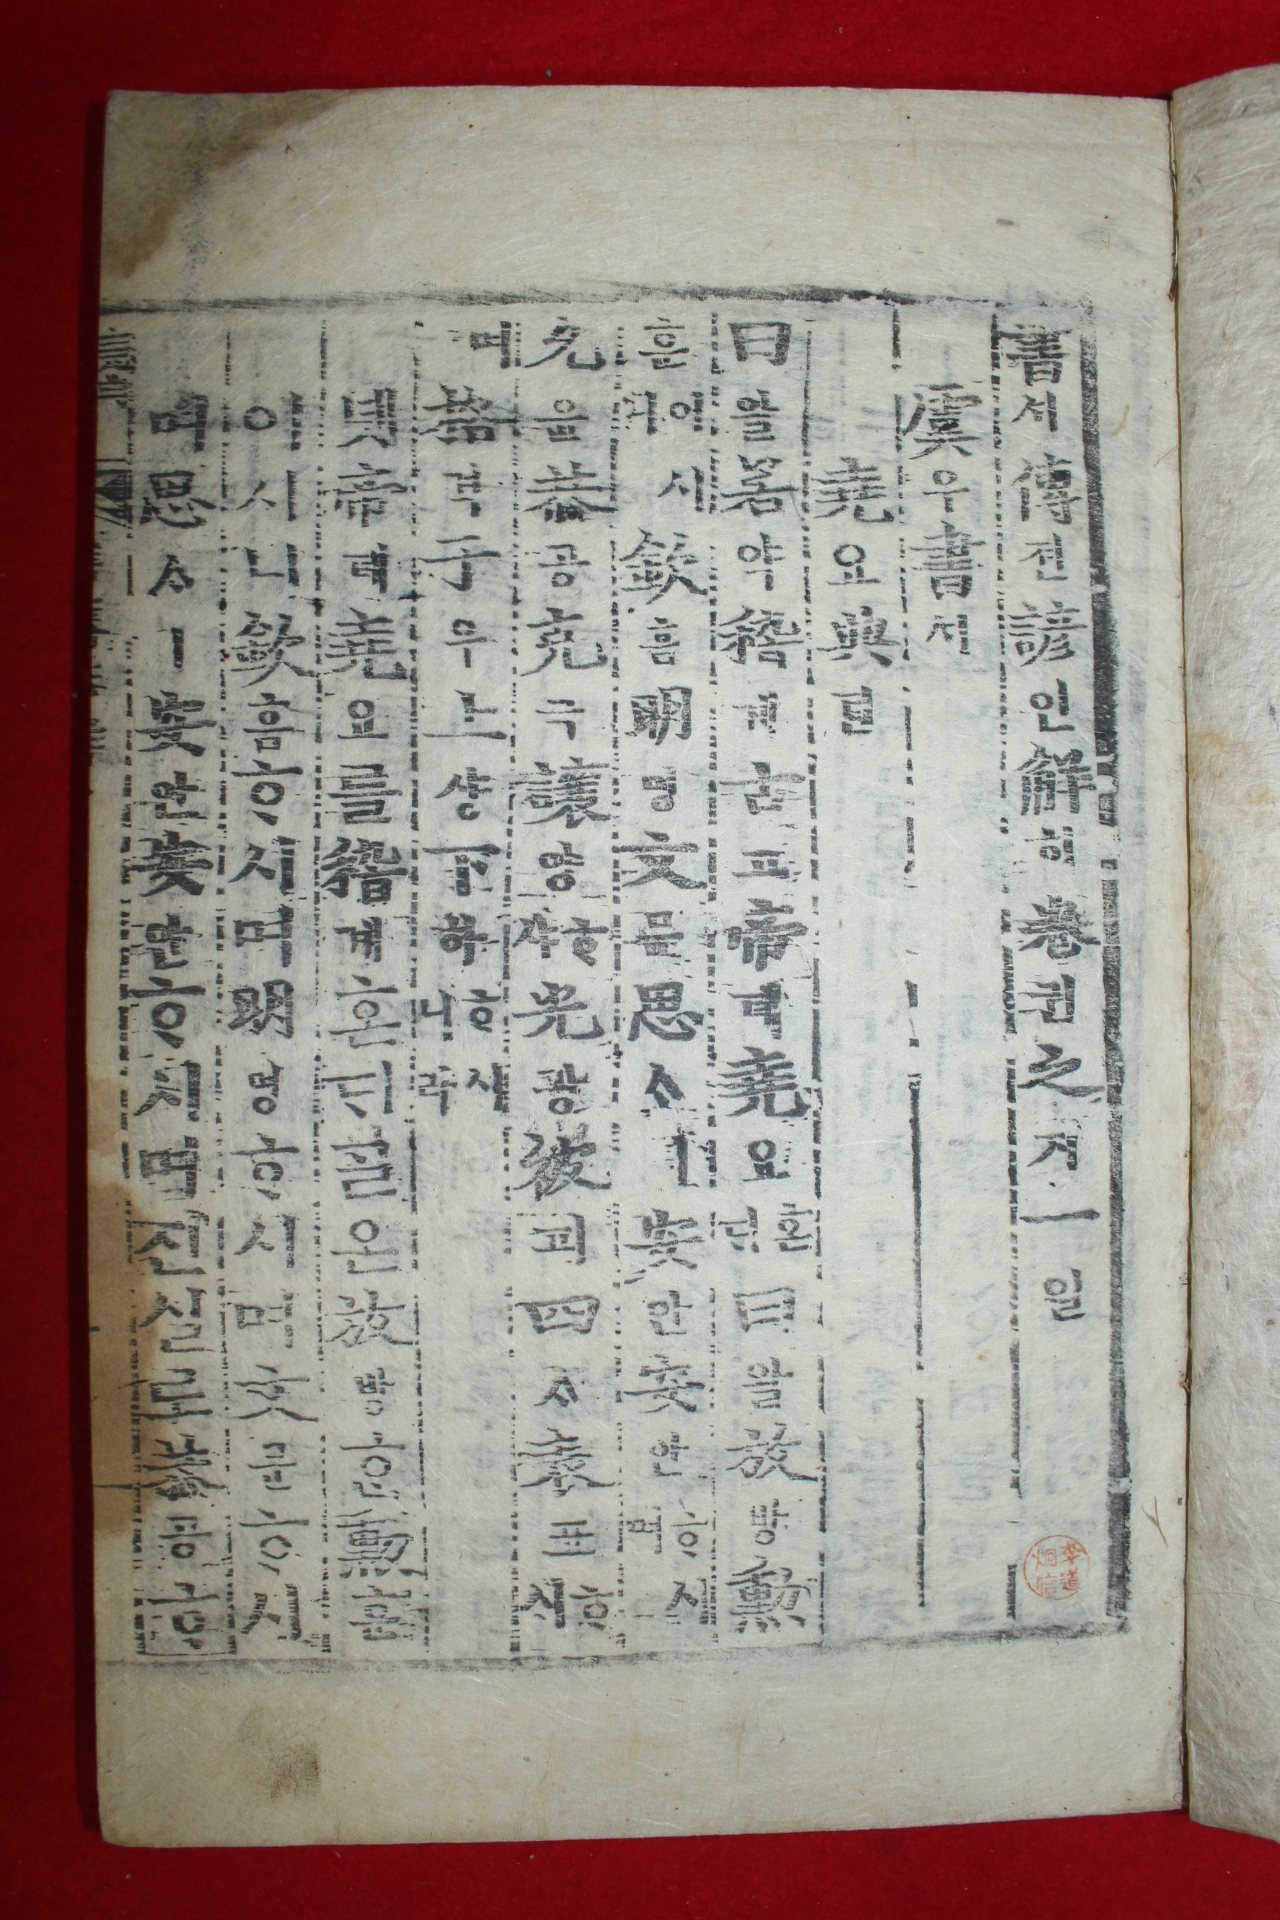 書셔傳젼諺언解ᄒᆡ卷권之지一일
虞우書셔
堯요典뎐
曰왈若약稽계古고帝뎨堯요혼ᄃᆞᆫ曰왈放방勳
훈이시니欽흠明명文문思ᄉᆞㅣ安안安안ᄒᆞ시며
允윤恭공克극讓양ᄒᆞ샤光광被피四ᄉᆞ表표ᄒᆞ시며
格격于우上샹下하ᄒᆞ시니라
녯帝뎨堯요를稽계혼ᄃᆞᆫ ᄀᆞᆯ온放방ᄒᆞᆫ勳훈
이시니欽흠ᄒᆞ시며明명ᄒᆞ시며文문ᄒᆞ시
며思ᄉᆞㅣ安안安안ᄒᆞ시며진실로恭공ᄒᆞ
李道炯信